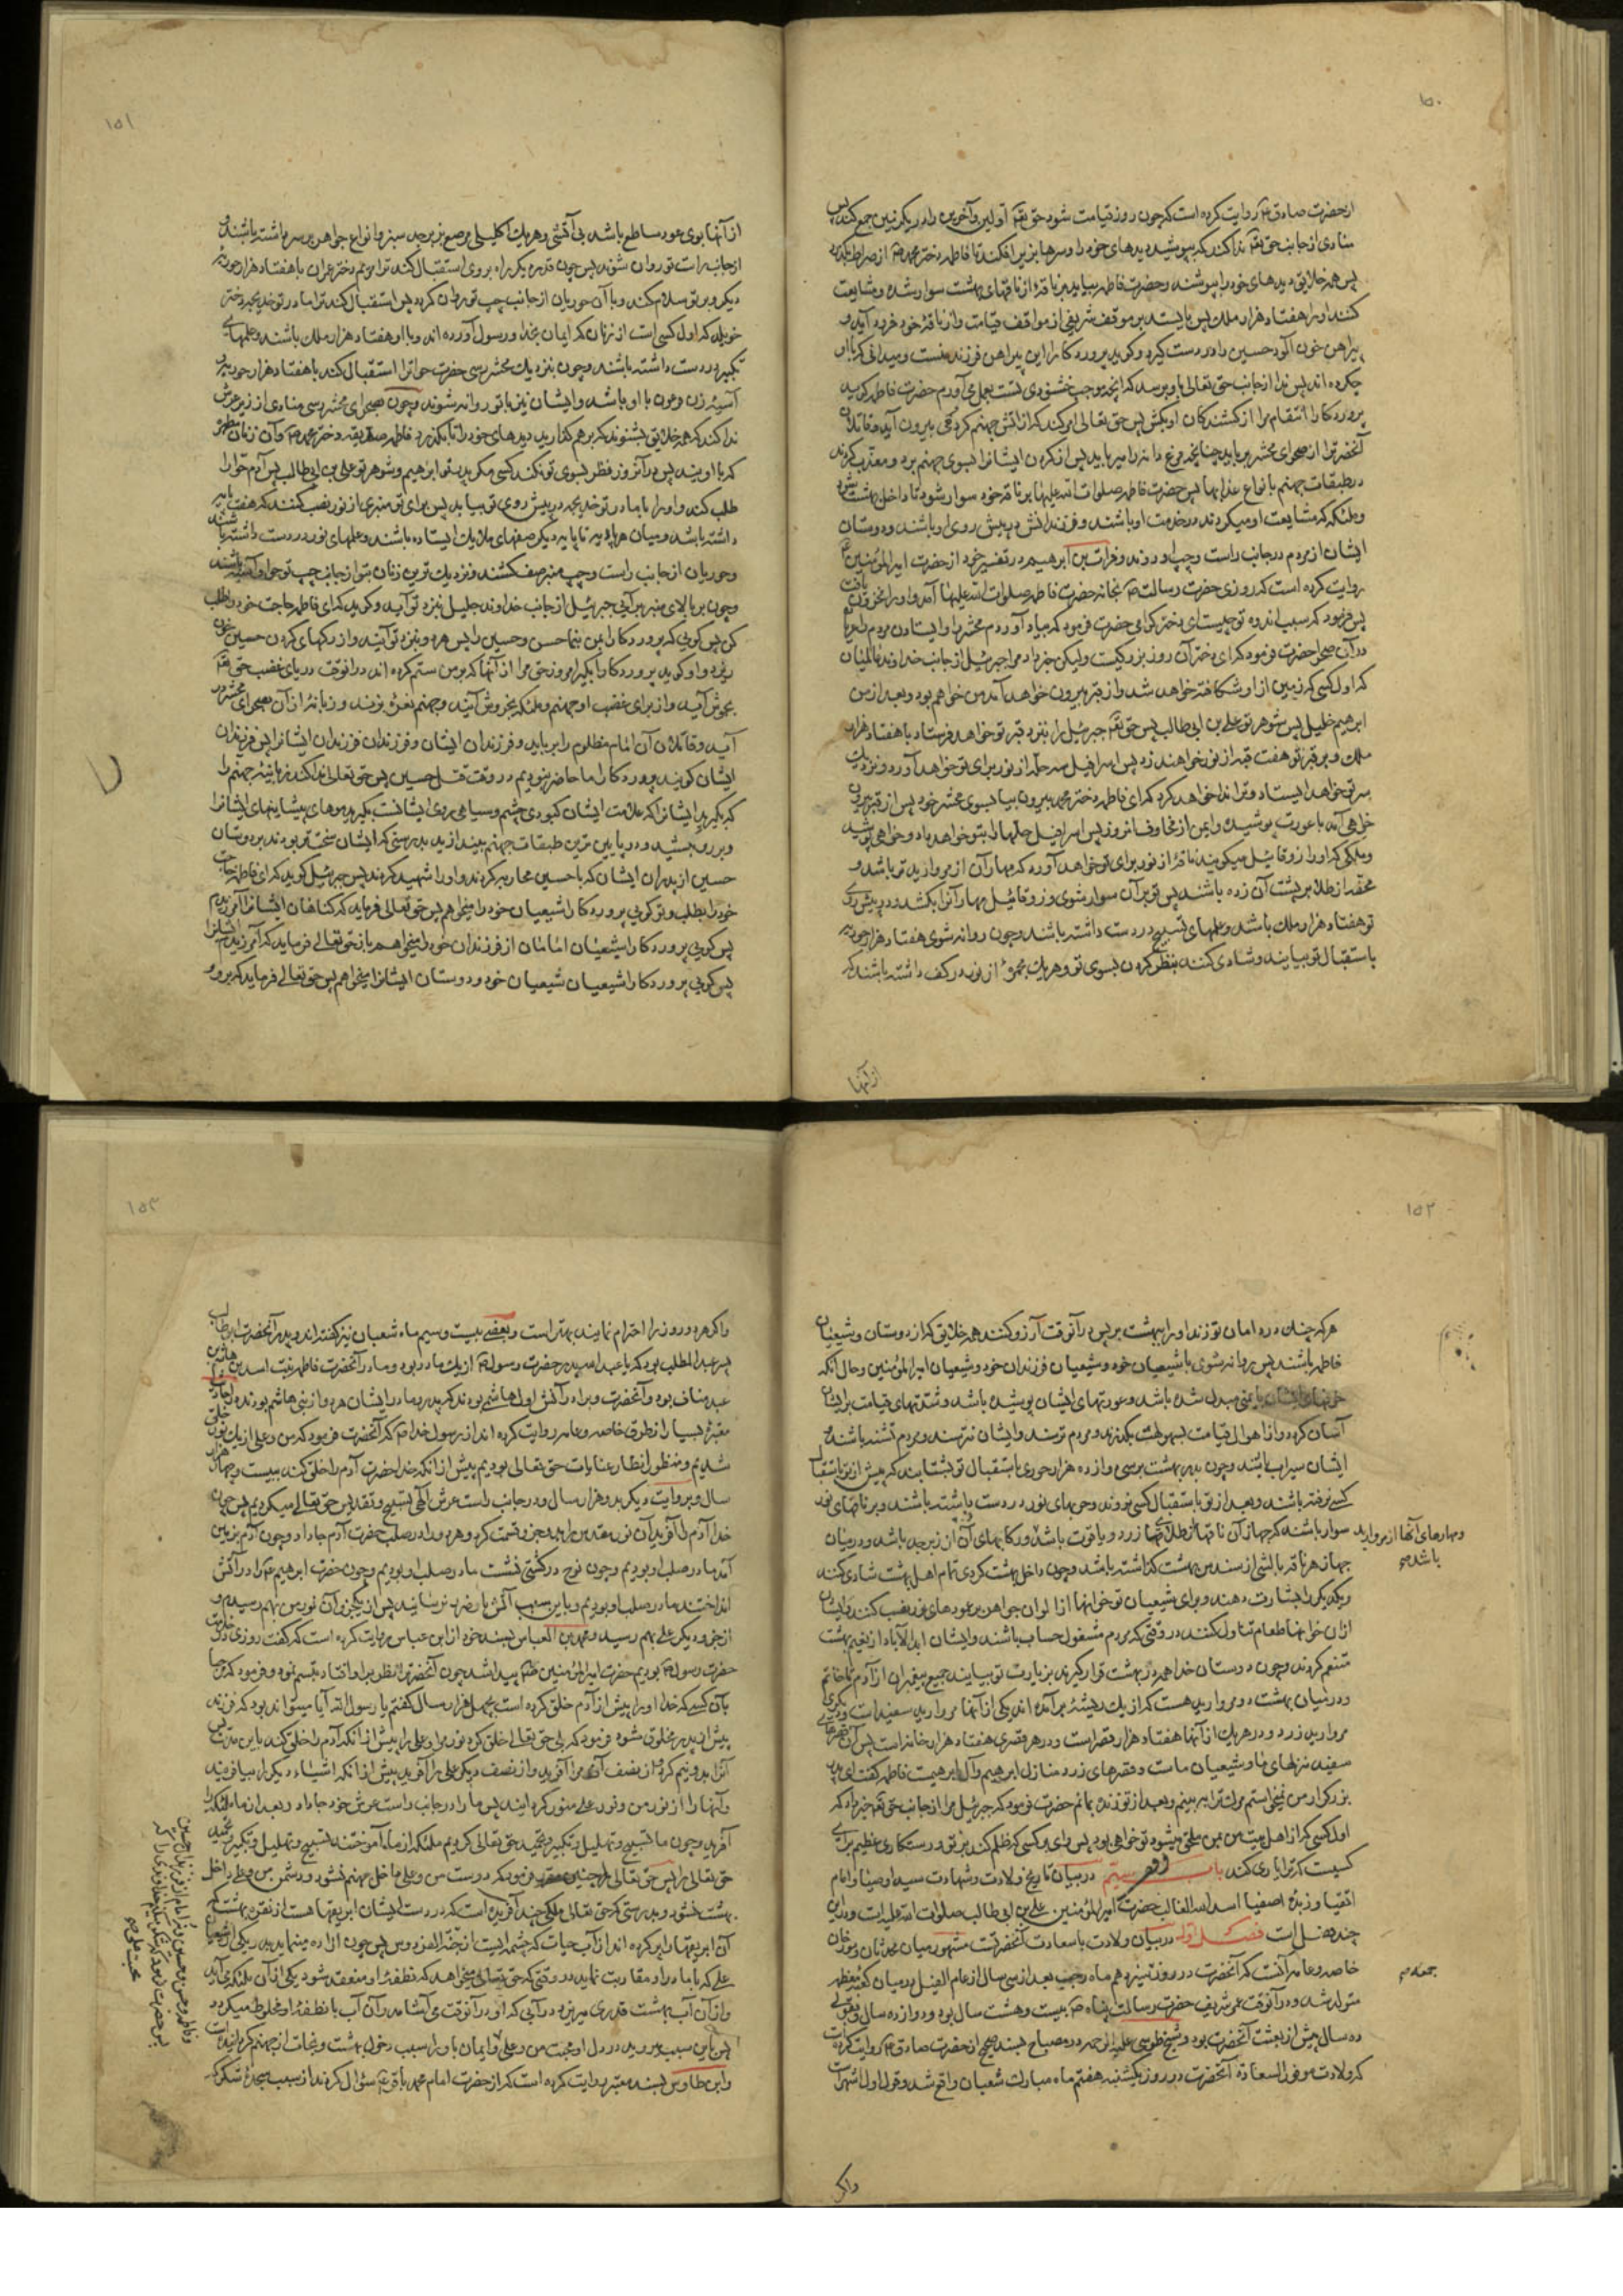 ۱۵۰
از حضرت صادق ع روایت کرده است که چون روز قیامت شود حق تعالی اولین و آخرین را در یک زمین جمع کند پس
منادی از جانب حق تعالی ندا کند که بپوشید دیدهای خود را و سرها بزیر افکنید تا فاطمه دختر محمد ص از صراط بگذرد
پس همه خلایق دیدهای خود را بپوشند و حضرت فاطمه بیاید بر ناقهٔ از ناقهای بهشت سوار شده و مشایعت
کنند او را هفتاد هزار ملک پس بایستد بر موقف شریفی از مواقف قیامت و از ناقهٔ خود فرود آید و
پیراهن خون آلود حسین را در دست گیرد و گوید پروردکارا این پیراهن فرزند منست و میدانی که با او
چکرده اند پس ندا از جانب حق تعالی باو برسد که آنچه موجب خشنودی تست بعمل می آورم حضرت فاطمه گوید
پروردکارا انتقام مرا از کشندکان او بکش پس حق تعالی امر کند که از آتش جهنم کردنی بیرون آید و قاتلان
آنحضرترا از صحرای محشر برباید چنانچه مرغ دانه را میرباید پس از کردن ایشانرا بسوی جهنم برد و معذب کردند
در طبقات جهنم بانواع عذابها پس حضرت فاطمه صلوات الله علیها بر ناقهٔ خود سوار شود تا داخل بهشت شود
و ملائکه که مشایعت او میکردند در خدمت او باشند و فرزندانش در پیش روی او باشند و دوستان
ایشان از مردم در جانب راست و چپ او روند و فرات بن ابرهیم در تفسیر خود از حضرت امیرالمؤمنین ع
روایت کرده است که روزی حضرت رسالت ص بخانه حضرت فاطمه صلوات الله علیها آمد و او را محزون یافت
پس فرمود که سبب اندوه تو چیست ای دختر کرامی حضرت فرمود که بیاد آوردم محشر را و ایستادن مردم را عریان
در آن صحرا حضرت فرمود که ای دختر آن روز بزرکیست ولیکن خبر داد مرا جبرئیل از جانب خداوند عالمیان
که اول کسی که زمین از او شکافته خواهد شد و از قبر بیرون خواهد آمد من خواهم بود و بعد از من
ابرهیم خلیل پس شوهر تو علی بن ابی طالب پس حق تعالی جبرئیل را بنزد قبر تو خواهد فرستاد با هفتاد هزار
ملک و بر قبر تو هفت قبه از نور خواهند زد پس اسرافیل سه حله از نور برای تو خواهد آورد و نزدیک
سر تو خواهد ایستاد و ترا ندا خواهد کرد که ای فاطمه دختر محمد بیرون بیا بسوی محشر خود پس از قبر بیرون
خواهی آمد با عورت پوشیده و ایمن از مخاوف آنروز پس اسرافیل حلها را بتو خواهد داد و خواهی پوشید
و ملکی که او را زوقائیل میکویند ناقهٔ از نور برای تو خواهد آورد که مهار آن از مروارید تر باشد و
محفهٔ از طلا بر پشت آن زده باشند پس تو بر آن سوار شوی و زوقائیل مهار آنرا بکشد و در پیش روی
تو هفتاد هزار ملک باشد و علمهای تسبیح در دست داشته باشند و چون روانه شوی هفتاد هزار حوریه
باستقبال تو بیایند و شادی کنند بنظر کردن بسوی تو و هریک مجمرهٔ از نور در کف داشته باشند که
از آنها
۱۵۱
از آنها بوی عود ساطع باشد بی آتشی و هریک اکلیلی مرصع بزبرجد سبز و انواع جواهر بر سر داشته باشند و
از جانب راست تو روان شوند پس چون قدری دیگر براه بروی استقبال کند ترا مریم دختر عمران با هفتاد هزار حوریهٔ
دیکر و بر تو سلام کند و با آن حوریان از جانب چپ تو روان گردد پس استقبال کند ترا مادر تو خدیجه دختر
خویلد که اول کسی است از زنان که ایمان بخدا و رسول آورده اند و با او هفتاد هزار ملک باشند و علمهای
تکبیر در دست داشته باشند و چون نزدیک محشر رسی حضرت حوا ترا استقبال کند با هفتاد هزار حوریه
آسیه زن فرعون با او باشد و ایشان نیز با تو روانه شوند و چون بصحرای محشر رسی منادی از زیر عرش
ندا کند که همه خلایق بشنوند که بر هم کذارید دیدهای خود را تا بگذرد فاطمه صدیقه دختر محمد ص و آن زنان مطهره
که با اویند پس در آنروز نظر بسوی تو نکند کسی مکر پدر تو ابرهیم و شوهر تو علی بن ابی طالب پس آدم حوا را
طلب کند و او را با مادر تو خدیجه در پیش روی تو بیابد پس برای تو منبری از نور نصب کنند که هفت پایه
داشته باشد و میان هر پایه تا پایه دیگر صفهای ملائکه ایستاده باشند و علمهای نور در دست داشته باشند
و حوریان از جانب راست و چپ منبر صف کشند و نزدیک ترین زنان بتو از جانب چپ تو حوا و آسیه باشند
و چون بر بالای منبر برآئی جبرئیل از جانب خداوند جلیل بنزد تو آید و گوید که ای فاطمه حاجت خود را طلب
کن پس کوئی که پروردکارا بمن بنما حسن و حسین را پس هر دو بنزد تو آیند و از رکهای کردن حسین خون
ریزد و او گوید پروردکارا بکیر امروز حق مرا از آنها که بر من ستم کرده اند در آنوقت دریای غضب حق تعالی
بجوش آید و از برای غضب او جهنم و ملائکه بخروش آیند و جهنم نعرهٔ بزند و زبانهٔ از آن بصحرای محشر در
آید و قاتلان آن امام مظلوم را برباید و فرزندان ایشان و فرزندان فرزندان ایشانرا پس فرزندان
ایشان کویند پروردکارا ما حاضر نبودیم در وقت قتل حسین پس حق تعالی ندا کند زبانیهٔ جهنم را
که بکیرید ایشانرا که علامت ایشان کبودی چشم و سیاهی روی ایشانست بکیرید موهای پیشانیهای ایشانرا
و بر رو بکشید و در پایین ترین طبقات جهنم بیندازید بدرستی که ایشان سخت تر بودند بر دوستان
حسین از پدران ایشان که با حسین محاربه کردند و او را شهید کردند پس جبرئیل گوید که ای فاطمه حاجت
خود را بطلب و تو کوئی پروردکارا شیعیان خود را میخواهم پس حق تعالی فرماید که کناهان ایشانرا آمرزیدم
پس کوئی پروردکارا شیعیان امامان از فرزندان خود را میخواهم باز حق تعالی فرماید که آمرزیدم ایشانرا
پس کوئی پروردکارا شیعیان شیعیان خود و دوستان ایشانرا میخواهم پس حق تعالی فرماید که برو و
۱۵۲
هر که چنک در دامان تو زند او را ببهشت بر پس در آنوقت آرزو کنند همه خلایق که از دوستان و شیعیان
فاطمه باشند پس روانه شوی با شیعیان خود و شیعیان فرزندان خود و شیعیان امیرالمؤمنین و حال آنکه
خوفهای ایشان بایمنی مبدل شده باشد و عورتهای ایشان پوشیده باشد و شدتهای قیامت بر ایشان
آسان گردد و از اهوال قیامت بسهولت بگذرند و مردم ترسند و ایشان نترسند و مردم تشنه باشند و
ایشان سیراب باشند و چون بدر بهشت برسی دوازده هزار حوری باستقبال تو بشتابند که پیش از تو باستقبال
کسی نرفته باشند و بعد از تو باستقبال کسی نروند و حربهای نور در دست داشته باشند و بر ناقهای نور
سوار باشند که جهاز آن ناقها از طلای زرد و یاقوت باشد و رکابهای آن از زبرجد باشد و در میان
ومهارهای آنها از مروارید باشد صح
جهاز هر ناقه بالشی از سندس بهشت کذاشته باشد و چون داخل بهشت گردی تمام اهل بهشت شادی کنند
و یکدیگر را بشارت دهند و برای شیعیان تو خوانها از الوان جواهر بر عمودهای نور نصب کنند و ایشان
از آن خوانها طعام تناول کنند در وقتی که مردم مشغول حساب باشند و ایشان ابدالآباد از نعیم بهشت
متنعم گردند و چون دوستان خدا همه در بهشت قرار گیرند بزیارت تو بیایند جمیع پیغمبران از آدم تا خاتم
و در میان بهشت دو مروارید هست که از یک ریشه برآمده اند یکی از آنها مروارید سفید است و دیگری
مروارید زرد و در هر یک از آنها هفتاد هزار قصر است و در هر قصری هفتاد هزار خانه است پس آن قصرهای
سفید منزلهای ما و شیعیان ماست و قصرهای زرد منازل ابرهیم و آل ابرهیمست فاطمه گفت ای پدر
بزرکوار من نمیخواستم مرک ترا ببینم و بعد از تو زنده بمانم حضرت فرمود که جبرئیل مرا از جانب حق تعالی خبر داد که
اول کسی که از اهل بیت من بمن ملحق میشود تو خواهی بود پس وای بر کسی که ظلم کند بر تو و رستکاری عظیم برای
کسیست که ترا یاری کند باب سیم در بیان تاریخ ولادت و شهادت سید اوصیا و امام
اتقیا و زبدهٔ اصفیا اسدالله الغالب حضرت امیرالمؤمنین علی بن ابی طالب صلوات الله علیه است و در این
چند فصل است فصل اول در بیان ولادت با سعادت آنحضرتست مشهور میان محدثان و مورخان
خاصه و عامه آنست که آنحضرت در روز سیزدهم ماه رجب بعد از سی سال از عام الفیل در میان کعبه معظمه
جمعه صح
متولد شد و در آنوقت عمر شریف حضرت رسالت پناه ص بیست و هشت سال بود و دوازده سال و بقولی
ده سال پیش از بعثت آنحضرت بود و شیخ طوسی علیه الرحمه در مصباح بسند صحیح از حضرت صادق ع روایت کرده است
که ولادت موفورالسعادة آنحضرت در روز یکشنبه هفتم ماه مبارک شعبان واقع شد و قول اول اشهر است
واگر
۱۵۳
واگر هر دو روز را احترام نمایند بهتر است و بعضی بیست و سیم ماه شعبان نیز گفته اند و پدر آنحضرت ابو طالب
پسر عبدالمطلب بود که با عبدالله پدر حضرت رسول ص از یک مادر بود و مادر آنحضرت فاطمه بنت اسد بن هاشم بن
عبد مناف بود و آنحضرت و برادرانش اول هاشمی بودند که پدر و مادر ایشان هر دو از بنی هاشم بودند و احادیث
معتبرهٔ بسیار از طرق خاصه و عامه روایت کرده اند از رسول خدا ص که آنحضرت فرمود که من و علی از یک نور خلق
شدیم و منظور انظار عنایات حق تعالی بودیم پیش از آنکه خدا حضرت آدم را خلق کند ببیست و چهار هزار
سال و بروایت دیکر بدو هزار سال و در جانب راست عرش الهی تسبیح و تقدیس حق تعالی میکردیم پس چون
خدا آدم را آفرید آن نور مقدس را بدو جزو قسمت کرد و هر دو را در صلب حضرت آدم جا داد و چون آدم بزمین
آمد ما در صلب او بودیم و چون نوح در کشتی نشست ما در صلب او بودیم و چون حضرت ابرهیم ع را در آتش
انداختند ما در صلب او بودیم و باین سبب آتش باو ضرر نرسانید پس از یکجزو آن نور من بهم رسیدم و
از جزو دیکر علی بهم رسید و محمد بن العباس بسند خود از ابن عباس روایت کرده است که گفت روزی در خدمت
حضرت رسول ص بودیم حضرت امیرالمؤمنین ع پیدا شد چون آنحضرترا نظر بر او افتاد تبسم نمود و فرمود که مرحبا
بآن کسی که خدا او را پیش از آدم خلق کرده است بچهل هزار سال گفتم یا رسول الله آیا میتواند بود که فرزند
پیش از پدر مخلوق شود فرمود که بلی حق تعالی خلق کرد نور مرا و علی را پیش از آنکه آدم را خلق کند باین مدت پس
آنرا بدو نیم کرد از نصف آن مرا آفرید و از نصف دیکر علی را آفرید پیش از آنکه اشیاء دیکر را بیافریند
و آنها را از نور من و نور علی منور گردانید پس ما را در جانب راست عرش خود جا داد و بعد از ما ملائکه را
آفرید و چون ما تسبیح و تهلیل و تکبیر و تمجید حق تعالی کردیم ملائکه از ما آموختند تسبیح و تهلیل و تکبیر و تمجید
حق تعالی را پس حق تعالی فرمود که دوست من و علی داخل جهنم نشود و دشمن من و علی داخل
بهشت نشود و بدرستی که حق تعالی ملکی چند آفریده است که در دست ایشان ابریقها هست از نقرهٔ بهشت که
آن ابریقها را پر کرده اند از آب حیات که چشمه ایست از جنة الفردوس پس چون اراده مینماید پدر یکی از شیعیان
علی که با مادر او مقاربت نماید در وقتی که حق تعالی میخواهد که نطفهٔ او منعقد شود یکی از آن ملائکه می آید
و از آن آب بهشت قدری میریزد در آبی که او در آنوقت می آشامد و آن آب با نطفهٔ او مخلوط میکردد
پس باین سبب میروید در دل او محبت من و علی و ایمان باو را سبب دخول بهشت و نجات از جهنم گردانیده است
و ابن طاوس بسند معتبر روایت کرده است که از حضرت امام محمد باقر ع سؤال کردند از سبب سجدهٔ شکر که